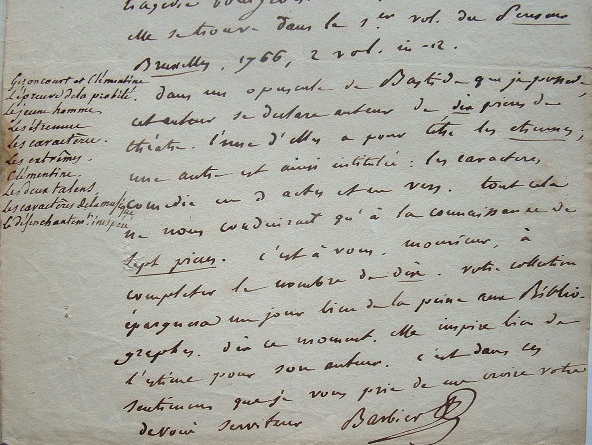 tragedie bourgeoise
elle se trouve dans le 1er vol. du Penseur
Bruxelles, 1766, 2 vol. in-12.
dans un opuscule de Bastide que je possede,
cet auteur se declare auteur de dix pieces de
théatre. l'une d'elles a pour titre les etrennes;
une autre est ainsi intitulée: les caracteres
comedie en 3 actes et en vers. tout cela
ne nous conduirait qu'à la connaissance de
sept pieces. c'est à vous, monsieur, à
completer le nombre de dix. votre collection
épargnera un jour bien de la peine aux Biblio-
graphes. dès ce moment, elle inspire bien de
l'estime pour son auteur. c'est dans ces
sentimens que je vous prie de me croire votre
devoué serviteur Barbier
Gezoncourt et Clémentine
L'épreuve de la probité.
Le jeune homme
Les étrennes
Les caractères.
Les extrêmes.
Clémentine.
Les deux talens,
Les caractères de la musique
Le désenchantemt. inespéré